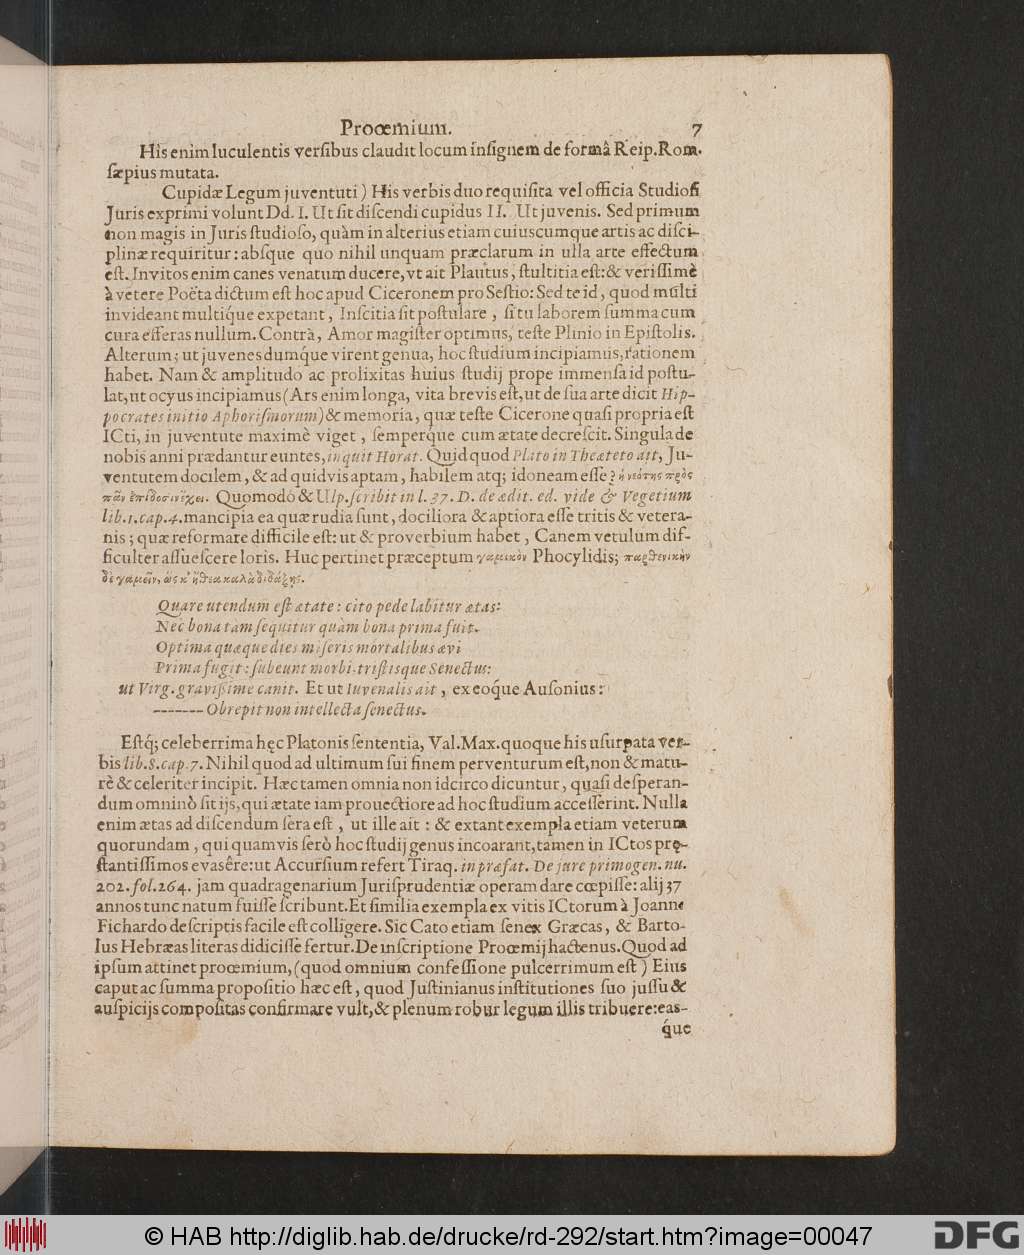 Proœmium. 7
His enim luculentis versibus claudit locum insignem de formâ Reip. Rom.
sæpius mutata.
Cupidæ Legum juventuti) His verbis duo requisita vel officia Studiosi
Juris exprimi volunt Dd. I. Ut sit discendi cupidus II. Ut juvenis. Sed primum
non magis in Juris studioso, quàm in alterius etiam cuiuscumque artis ac disci-
plinæ requiritur: absque quo nihil unquam præclarum in ulla arte effectum
est. Invitos enim canes venatum ducere, vt ait Plautus, stultitia est: & verissimè
à vetere Poëta dictum est hoc apud Ciceronem pro Sestio: Sed te id, quod multi
invideant multiq́ue expetant, Inscitia sit postulare, si tu laborem summa cum
cura efferas nullum. Contrà, Amor magister optimus, teste Plinio in Epistolis.
Alterum; ut juvenes dumq́ue virent genua, hoc studium incipiamus, rationem
habet. Nam & amplitudo ac prolixitas huius studij prope immensa id postu-
lat, ut ocyus incipiamus (Ars enim longa, vita brevis est, ut de sua arte dicit Hip-
pocrates initio Aphorismorum) & memoria, quæ teste Cicerone quasi propria est
ICti, in juventute maximè viget, semperq́ue cum ætate decrescit. Singula de
nobis anni prædantur euntes, inquit Horat. Quid quod Plato in Theæteto ait, Ju-
ventutem docilem, & ad quidvis aptam, habilem atq; idoneam esse ἡ νεότης πρὸς
πᾶν ἐπίδοσιν ἔχει. Quomodo & Ulp. scribit in l. 37. D. de ædit. ed. vide & Vegetium
lib. 1. cap. 4. mancipia ea quæ rudia sunt, dociliora & aptiora esse tritis & vetera-
nis; quæ reformare difficile est: ut & proverbium habet, Canem vetulum dif-
ficulter assuescere loris. Huc pertinet præceptum γαμικὸν Phocylidis; παρθενικὴν
δὲ γαμεῖν, ὡς κ' ἤθεα καλὰ διδάξῃς.
Quare utendum est ætate: cito pede labitur ætas:
Nec bona tam sequitur quàm bona prima fuit.
Optima quæque dies miseris mortalibus ævi
Prima fugit: subeunt morbi, tristisque Senectus:
ut Virg. gravissime canit. Et ut Iuvenalis ait, ex eoq́ue Ausonius:
------- Obrepit non intellecta senectus.
Estq́; celeberrima hęc Platonis sententia, Val. Max. quoque his usurpata ver-
bis lib. 8. cap. 7. Nihil quod ad ultimum sui finem perventurum est, non & matu-
rè & celeriter incipit. Hæc tamen omnia non idcirco dicuntur, quasi desperan-
dum omninò sit ijs, qui ætate iam prouectiore ad hoc studium accesserint. Nulla
enim ætas ad discendum sera est, ut ille ait: & extant exempla etiam veterum
quorundam, qui quamvis serò hoc studij genus incoarant, tamen in ICtos prę-
stantissimos evasêre: ut Accursium refert Tiraq. in præfat. De jure primogen. nu.
202. fol. 264. jam quadragenarium Jurisprudentiæ operam dare cœpisse: alij 37
annos tunc natum fuisse scribunt. Et similia exempla ex vitis ICtorum à Joanne
Fichardo descriptis facile est colligere. Sic Cato etiam senex Græcas, & Barto-
lus Hebræas literas didicisse fertur. De inscriptione Proœmij hactenus. Quod ad
ipsum attinet proœmium, (quod omnium confessione pulcerrimum est) Eius
caput ac summa propositio hæc est, quod Justinianus institutiones suo jussu &
auspicijs compositas confirmare vult, & plenum robur legum illis tribuere: eas-
q́ue
© HAB http://diglib.hab.de/drucke/rd-292/start.htm?image=00047
DFG